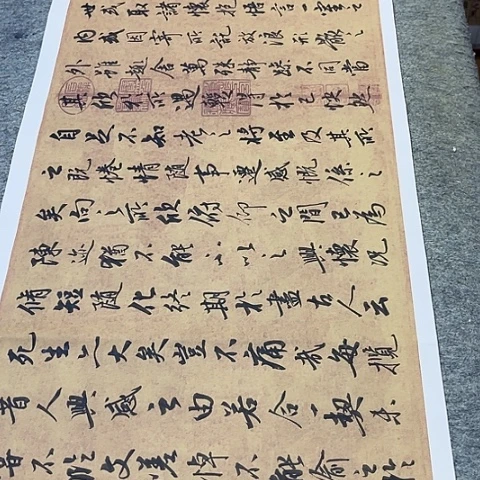 世或取諸懷抱悟言一室之
內或因寄所託放浪形骸之
外雖趣舍萬殊靜躁不同當
其欣於所遇蹔得於己快然
自足不知老之將至及其所
之既惓情隨事遷感慨係之
矣向之所欣俛仰之間已為
陳迹猶不能不以之興懷況
脩短隨化終期於盡古人云
死生亦大矣豈不痛哉每攬
昔人興感之由若合一契未
嘗不臨文嗟悼不能喻之於